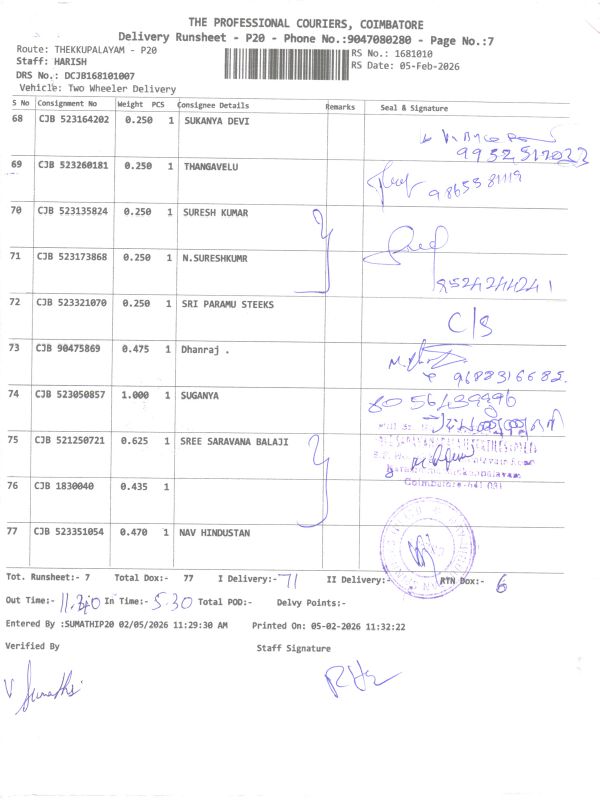 THE PROFESSIONAL COURIERS, COIMBATORE
Delivery Runsheet - P20 - Phone No.:9047080280 - Page No.:7
Route: THEKKUPALAYAM - P20
RS No.: 1681010
Staff: HARISH
RS Date: 05-Feb-2026
DRS No.: DCJB168101007
Vehicle: Two Wheeler Delivery
S No Consignment No Weight PCS Consignee Details Remarks Seal & Signature
68 CJB 523164202 0.250 1 SUKANYA DEVI
69 CJB 523260181 0.250 1 THANGAVELU
9865381119
70 CJB 523135824 0.250 1 SURESH KUMAR
71 CJB 523173868 0.250 1 N.SURESHKUMR
9524244241
72 CJB 523321070 0.250 1 SRI PARAMU STEEKS
C/S
73 CJB 90475869 0.475 1 Dhanraj .
9688316682.
74 CJB 523050857 1.000 1 SUGANYA
75 CJB 521250721 0.625 1 SREE SARAVANA BALAJI
Coimbatore-641 031
76 CJB 1830040 0.435 1
77 CJB 523351054 0.470 1 NAV HINDUSTAN
Tot. Runsheet:- 7 Total Dox:- 77 I Delivery:- 71 II Delivery:- RTN Dox:- 6
Out Time:- 11.30 In Time:- 5.30 Total POD:- Delvy Points:-
Entered By :SUMATHIP20 02/05/2026 11:29:30 AM Printed On: 05-02-2026 11:32:22
Verified By Staff Signature